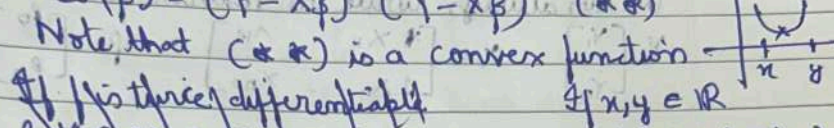 (1 - xβ) (1 - xβ) (**)
Note, that (**) is a convex function -
x y
If f is thrice differentiable If x, y ∈ ℝ